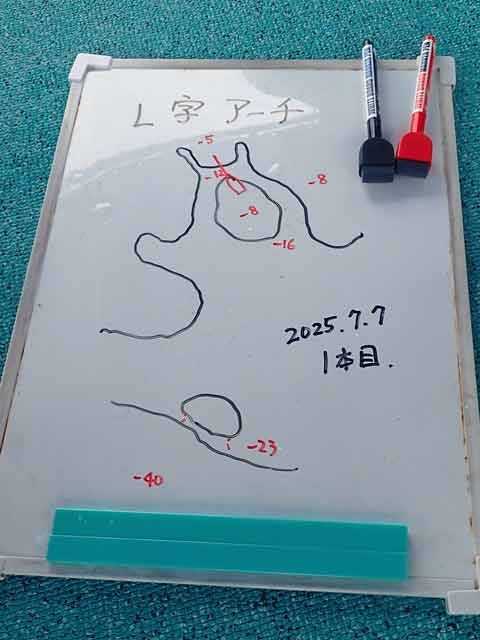 L字アーチ
-5
-12
-8
-8
-16
2025.7.7
1本目.
-23
-40